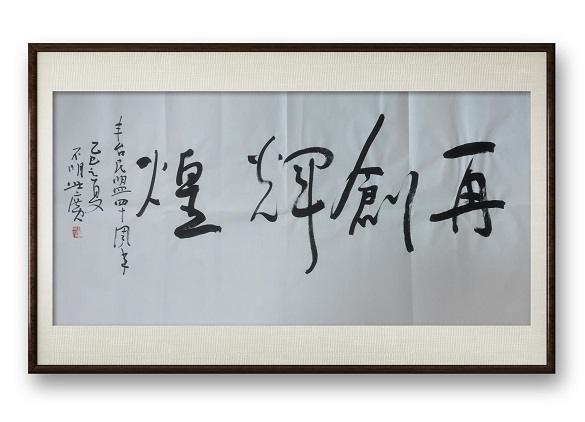 再創輝煌
丰台民盟四十周年
乙巳之夏